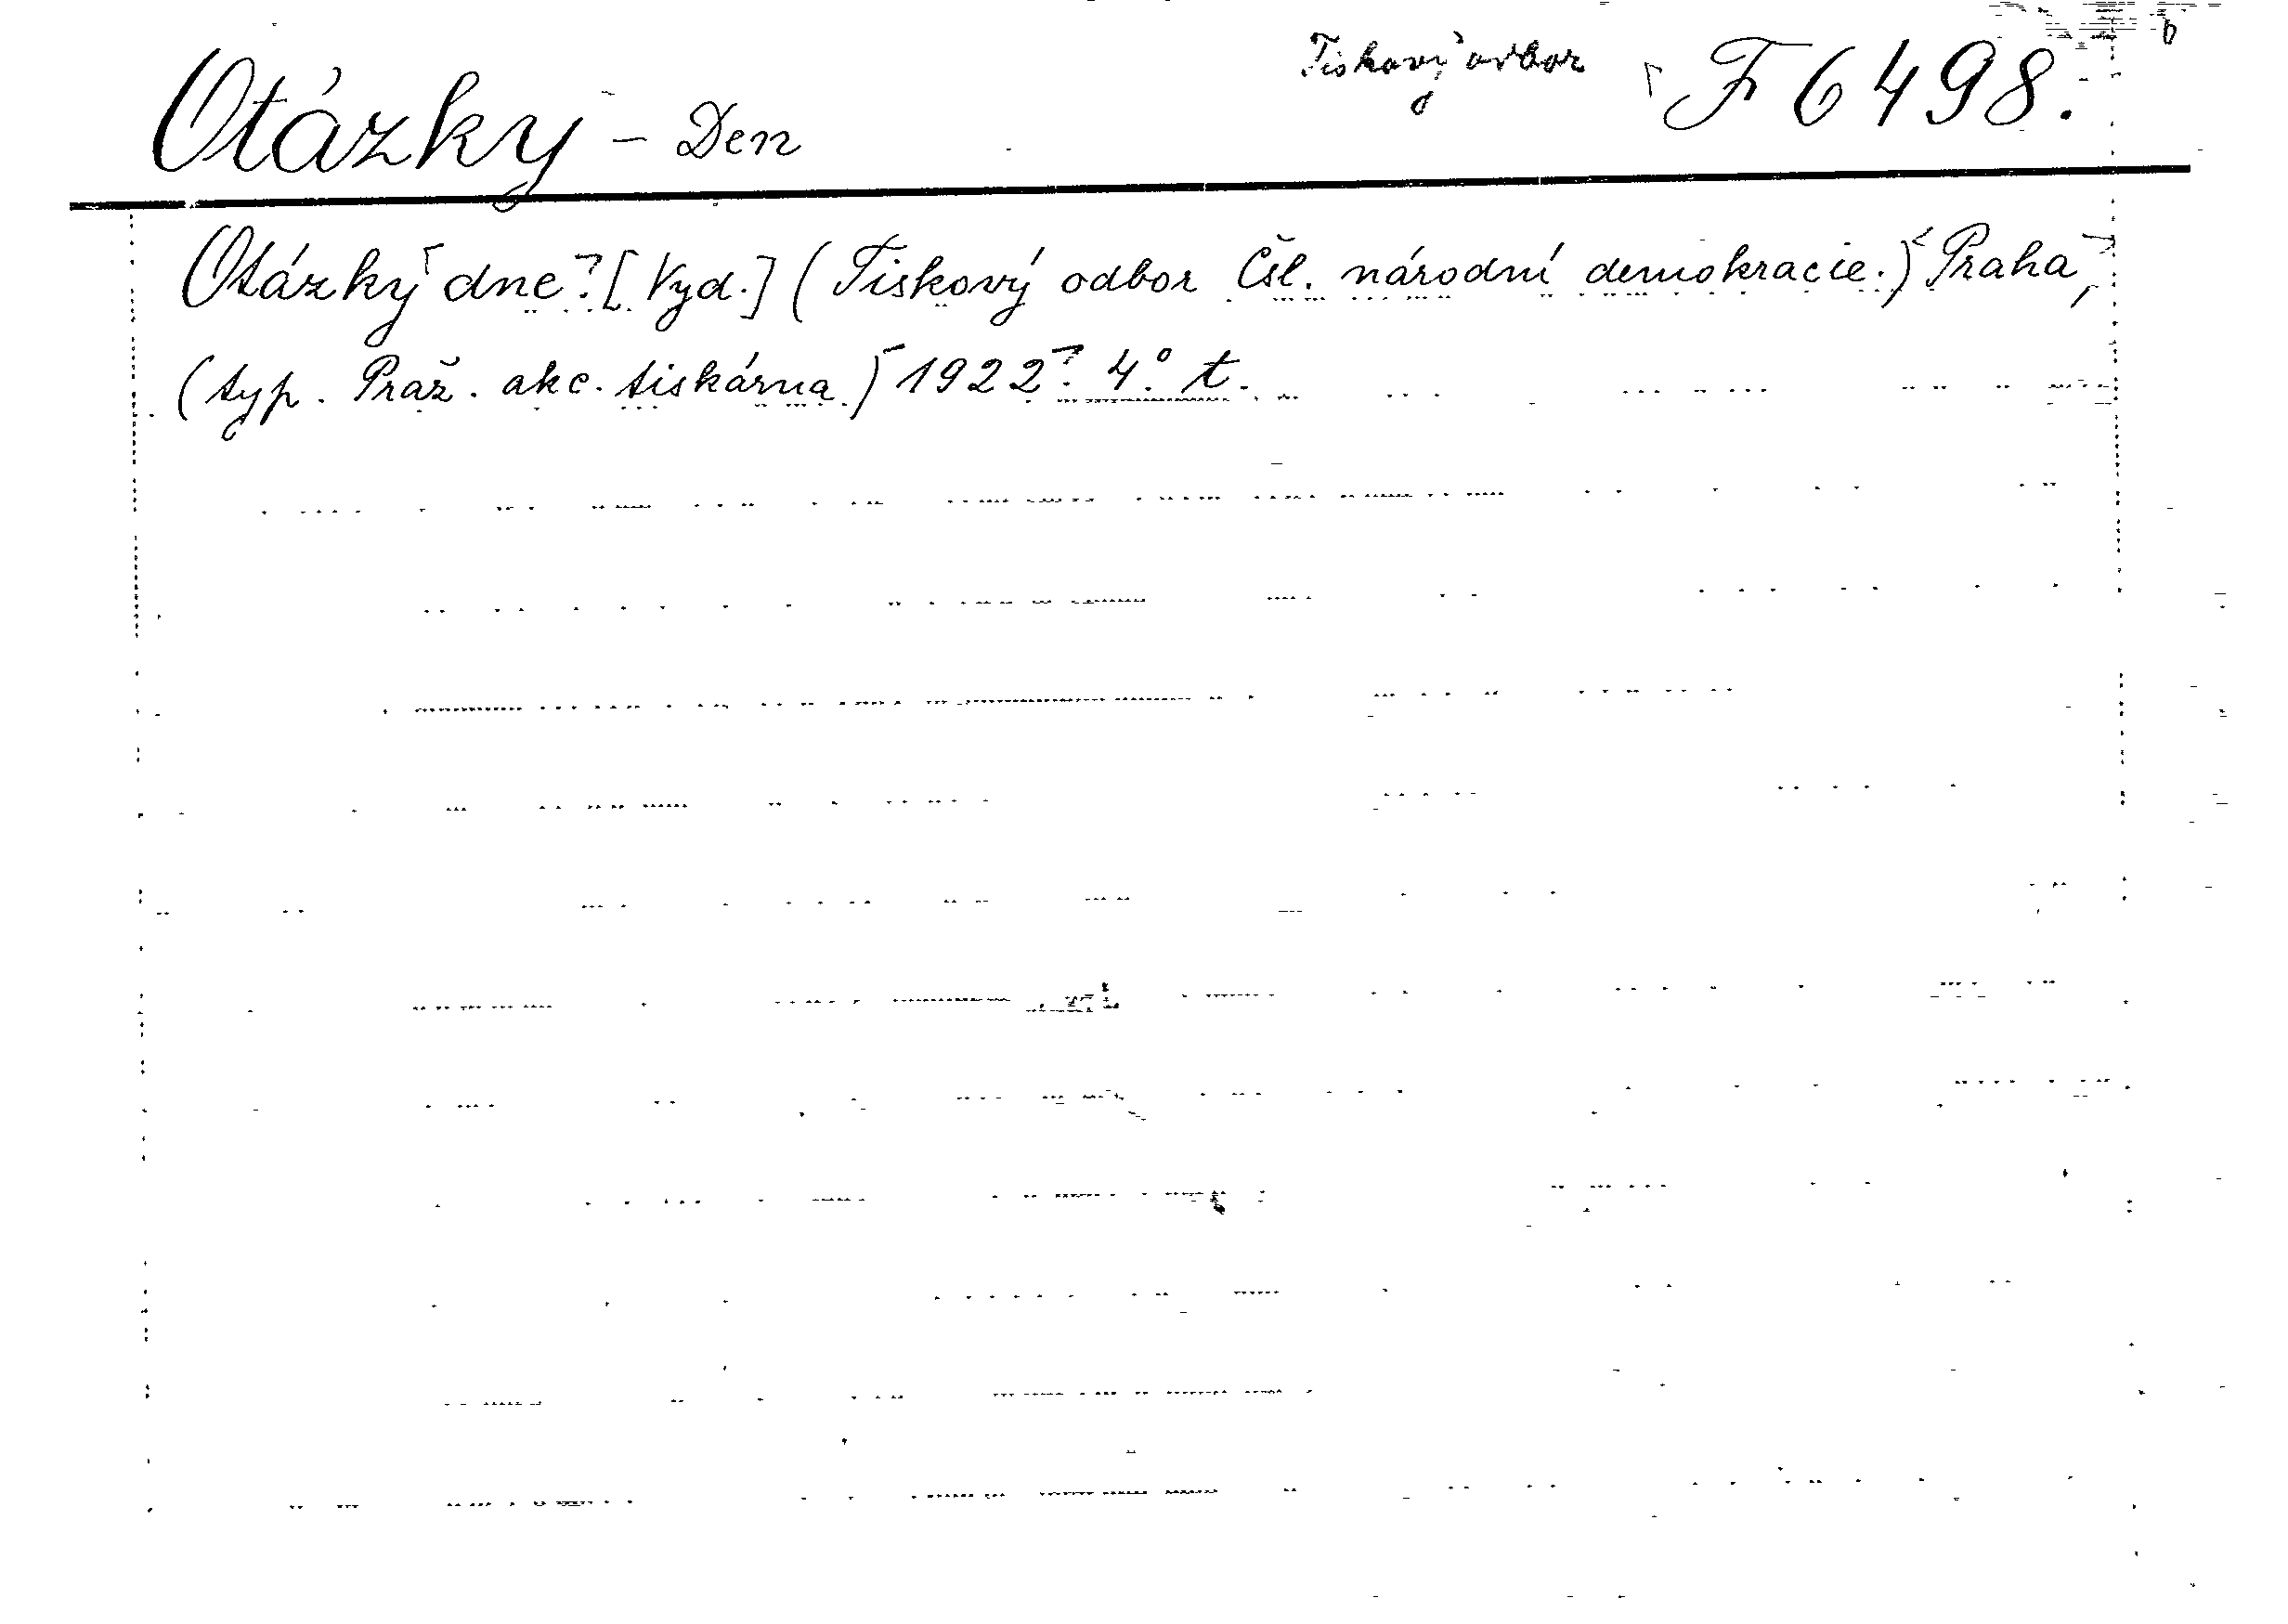 Otázky - Den Tiskový odbor F 6498.
Otázky dne. [Vyd.] (Tiskový odbor Čsl. národní demokracie.) Praha,
(typ. Praž. akc. tiskárna) 1922. 4° t.